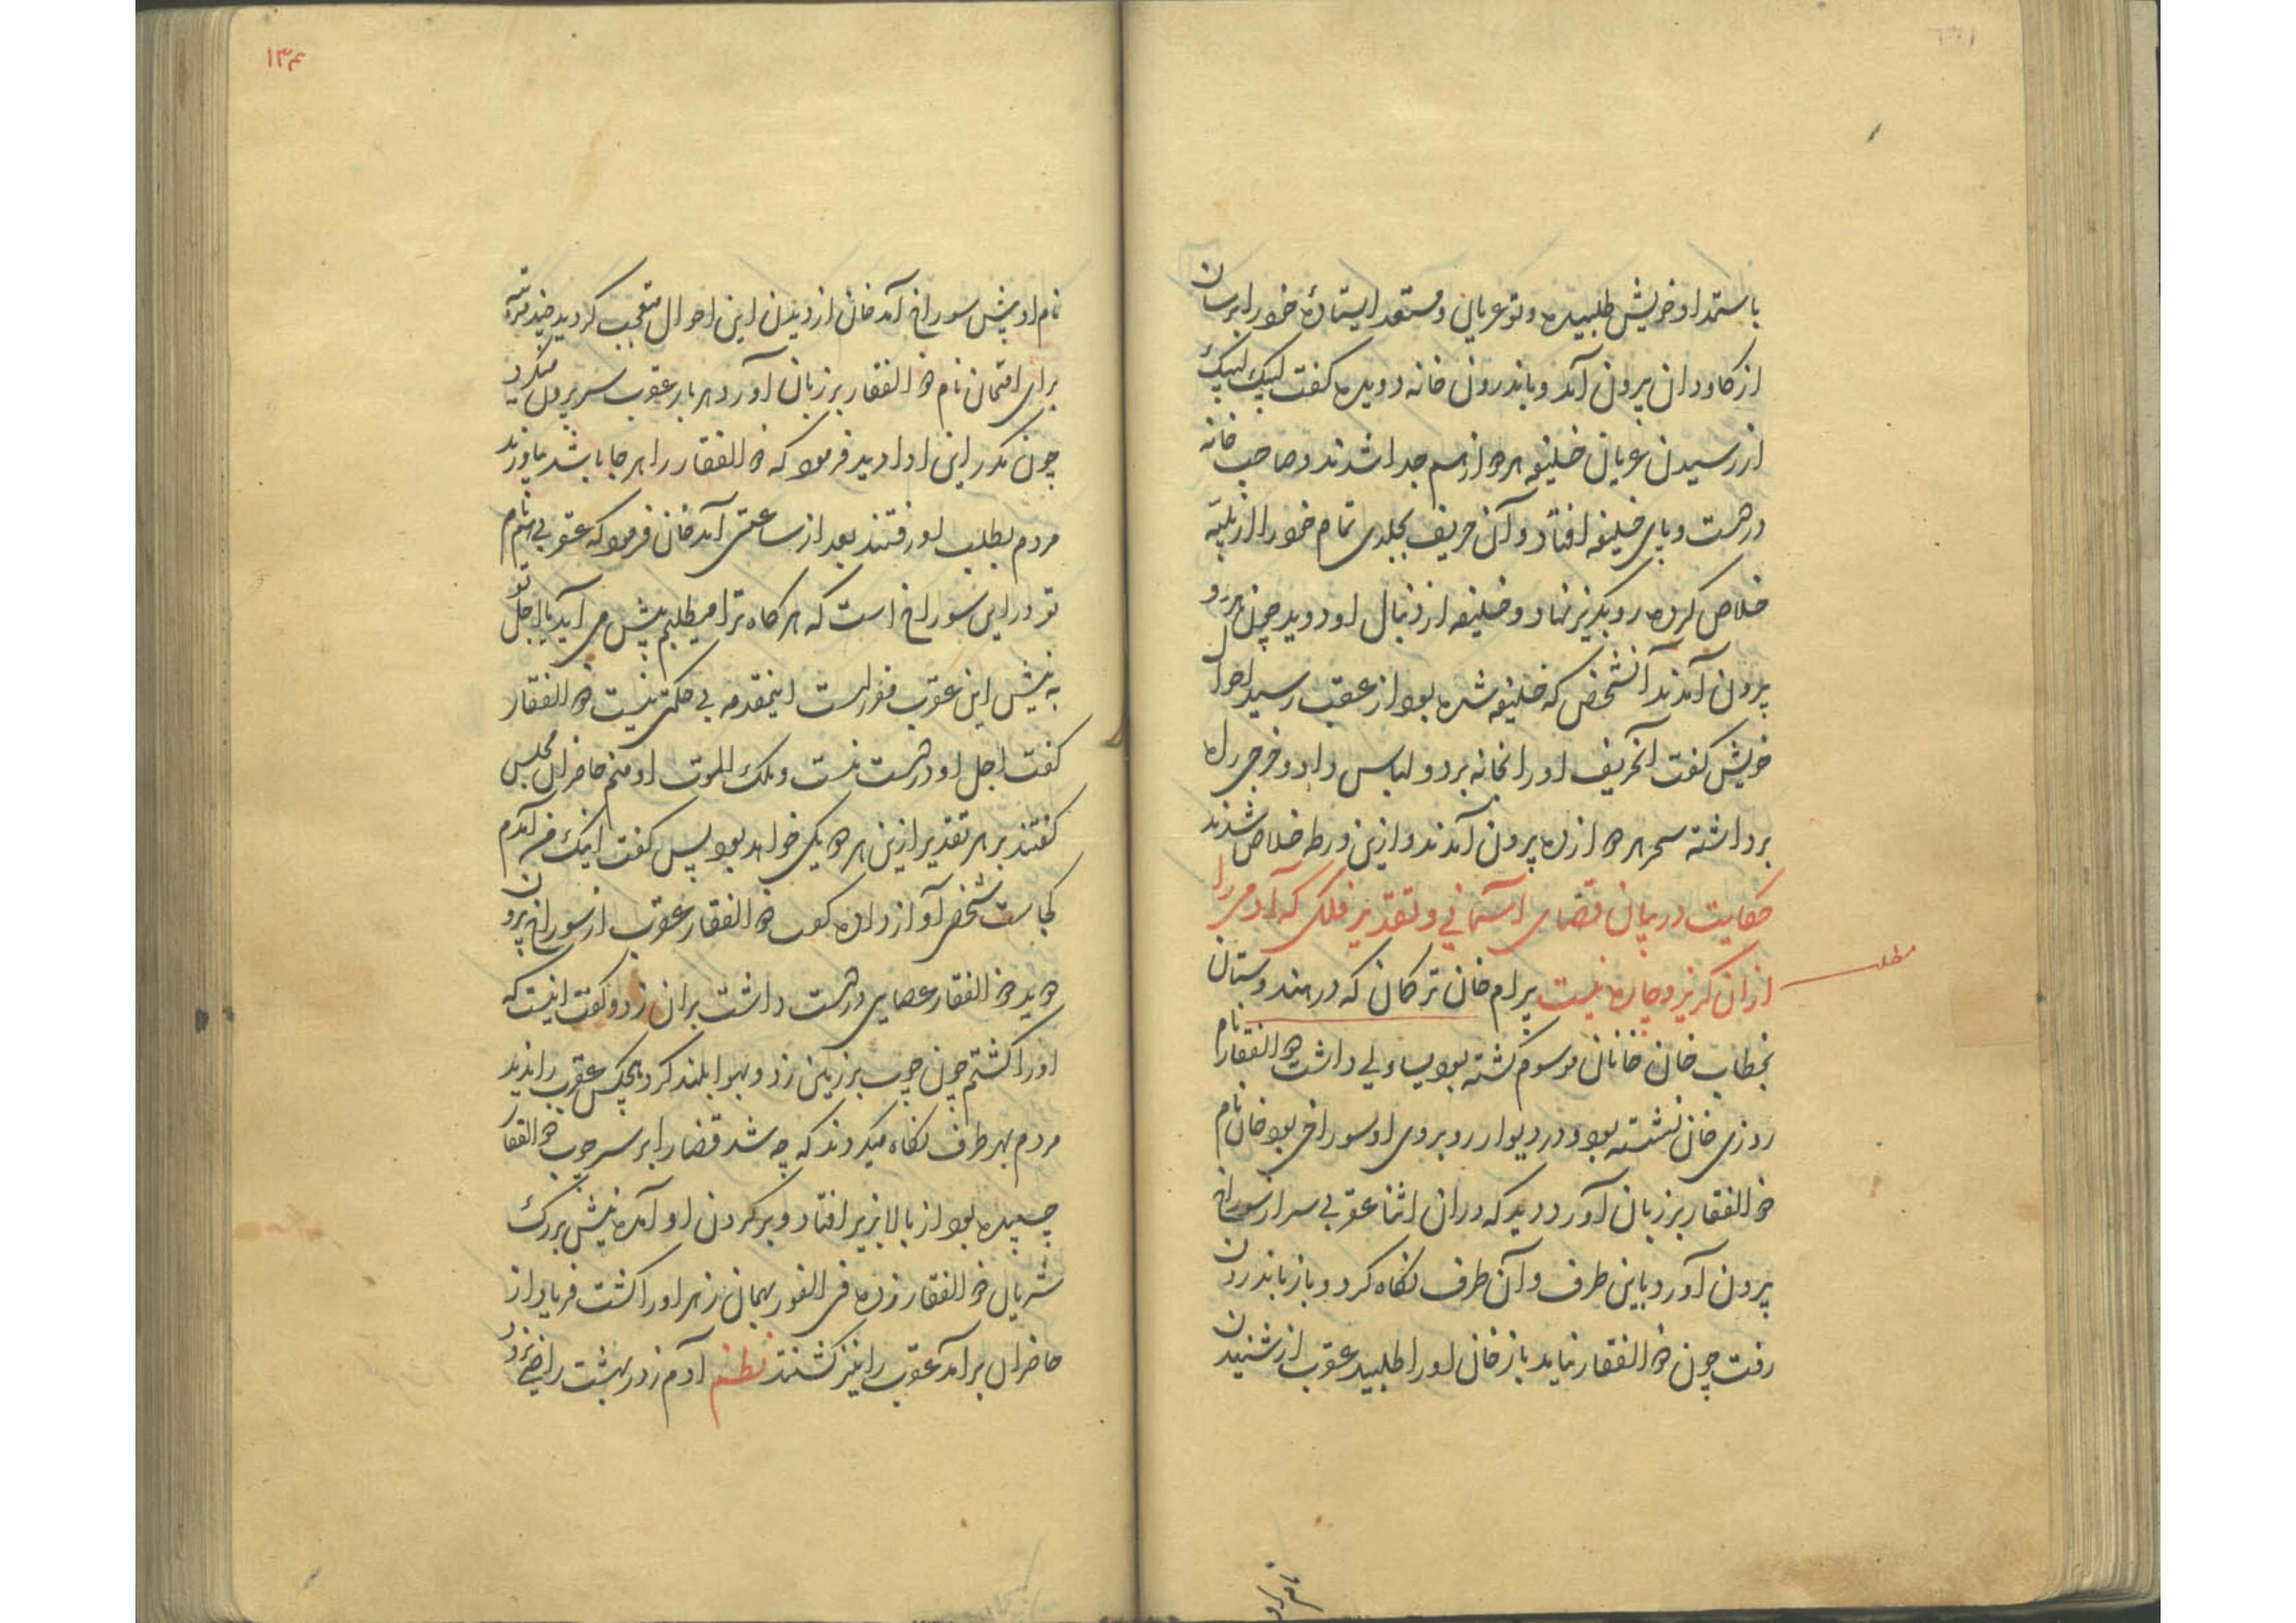 باستمداد خویش طلبیده و تو عریان و مستعد ایستاده خود را برسان
از کاودان برون آمد و باندرون خانه دویده کفت لبیک لبیک
از رسیدن عریان خلیفه هر دو از هم جدا شدند و صاحب خانه
در دست و پای خلیفه افتاد و آن حریف بجلدی تمام خود را از تلبیه
خلاص کرده رو بکریز نهاد و خلیفه از دنبال او دوید چون هر دو
برون آمدند آنشخص که خلیفه شده بود از عقب رسید احوال
خویش کفت آنحریف او را بخانه برد و لباس داد و خرجی راه
برداشته سحر هر دو از ده برون آمدند و ازین ورطه خلاص شدند
حکایت در بیان قضای آسمانی و تقدیر فلکی که آدمی را
از آن کریز و چاره نیست بیرام خان ترکمان که در هندوستان
مطلب
بخطاب خان خانان موسوم کشته بود یساولی داشت ذو الفقار نام
روزی خان نشسته بود و در دیوار روبروی او سوراخی بود خان نام
ذو الفقار بر زبان آورد دید که در آن اثنا عقربی سر از سوراخ
برون آورد و باین طرف و آن طرف نکاه کرد و باز باندرون
رفت چون ذو الفقار نیامد باز خان او را طلبید عقرب از شنیدن
۱۳۴
نام او پیش سوراخ آمد خان از دیدن این احوال متعجب کردید چند مرتبه
برای امتحان نام ذو الفقار بر زبان آورد هر بار عقرب سر برون میکرد
چون مکرر این ادا دید فرمود که ذو الفقار را هر جا باشد بیاورند
مردم بطلب او رفتند بعد از ساعتی آمد خان فرمود که عقربی بنام
تو در این سوراخ است که هر کاه ترا میطلبم پیش می آید یا اجل تو
به نیش این عقرب مقرر است اینمقدمه بی حکمتی نیست ذو الفقار
کفت اجل او در دست منست و ملک الموت او منم حاضران مجلس
کفتند بر هر تقدیر ازین هر دو یکی خواهد بود پس کفت اینک من آمدم
کجاست شخصی آواز داده کفت ذو الفقار عقرب از سوراخ برون
دوید ذو الفقار عصایی در دست داشت بر آن زد و کفت اینست که
او را کشتم چون چوب بر زمین زد و بهوا بلند کرد هیچکس عقرب را ندید
مردم بهر طرف نکاه میکردند که چه شد قضا را بر سر چوب ذو الفقار
چسپیده بود از بالا بزیر افتاد و بر کردن او آمده نیش بر رک
شریان ذو الفقار زده فی الفور بهمان زهر او را کشت فریاد از
حاضران برآمد عقرب را نیز کشتند نظم آدم زد در بهشت را خیمه زد